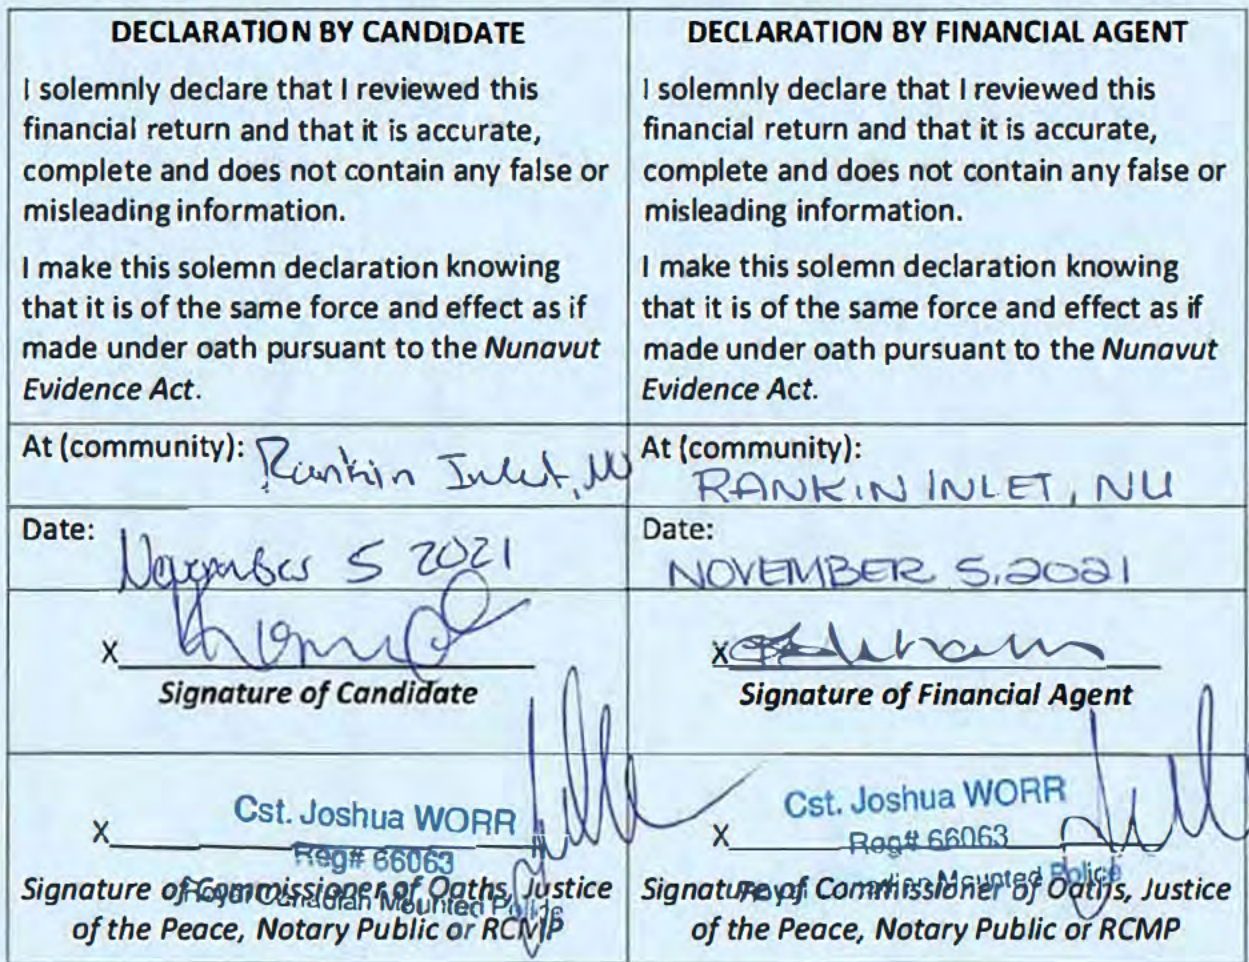 DECLARATION BY CANDIDATE
I solemnly declare that I reviewed this
financial return and that it is accurate,
complete and does not contain any false or
misleading information.
I make this solemn declaration knowing
that it is of the same force and effect as if
made under oath pursuant to the Nunavut
Evidence Act.
At (community): Rankin Inlet, NU
Date: November 5 2021
X
Signature of Candidate
X
Cst. Joshua WORR
Reg# 66063
Royal Canadian Mounted Police
Signature of Commissioner of Oaths, Justice
of the Peace, Notary Public or RCMP
DECLARATION BY FINANCIAL AGENT
I solemnly declare that I reviewed this
financial return and that it is accurate,
complete and does not contain any false or
misleading information.
I make this solemn declaration knowing
that it is of the same force and effect as if
made under oath pursuant to the Nunavut
Evidence Act.
At (community):
RANKIN INLET, NU
Date:
NOVEMBER 5, 2021
X
Signature of Financial Agent
X
Cst. Joshua WORR
Reg# 66063
Royal Canadian Mounted Police
Signature of Commissioner of Oaths, Justice
of the Peace, Notary Public or RCMP